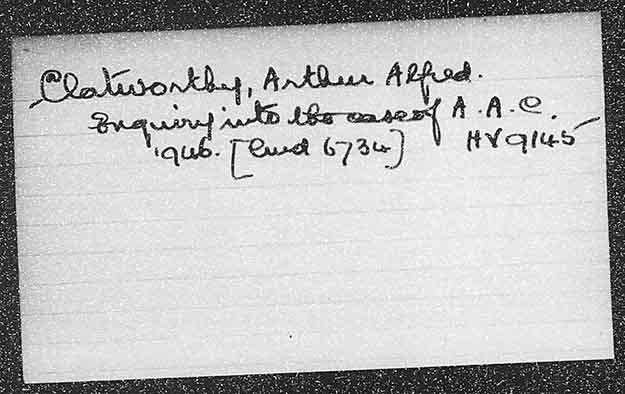 Clatworthy, Arthur Alfred.
Enquiry into the case of A.A.C.
1946. [Cmd 6734] HV 9145